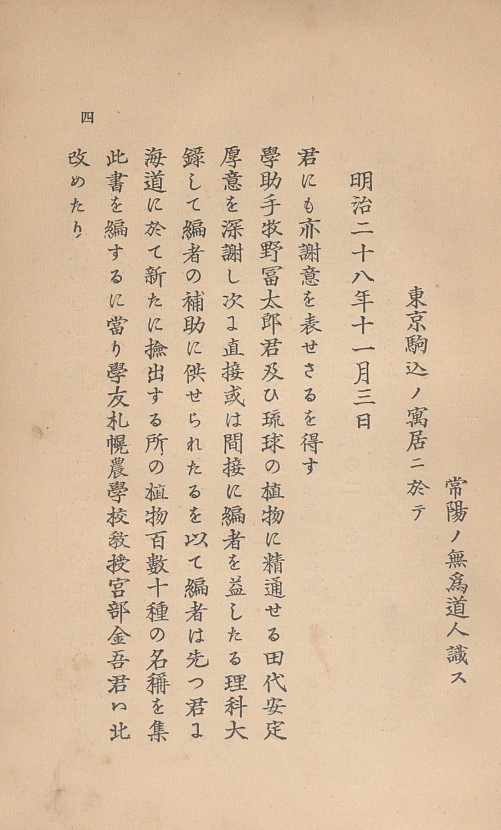 四
改めたり
此書を編するに當り學友札幌農學校敎授宮部金吾君ハ北
海道に於て新たに撿出する所の植物百數十種の名稱を集
錄して編者の補助に供せられたるを以て編者は先つ君に
厚意を深謝し次に直接或は間接に編者を益したる理科大
學助手牧野冨太郎君及ひ琉球の植物に精通せる田代安定
君にも亦謝意を表せさるを得す
明治二十八年十一月三日
東京駒込ノ寓居ニ於テ
常陽ノ無爲道人識ス